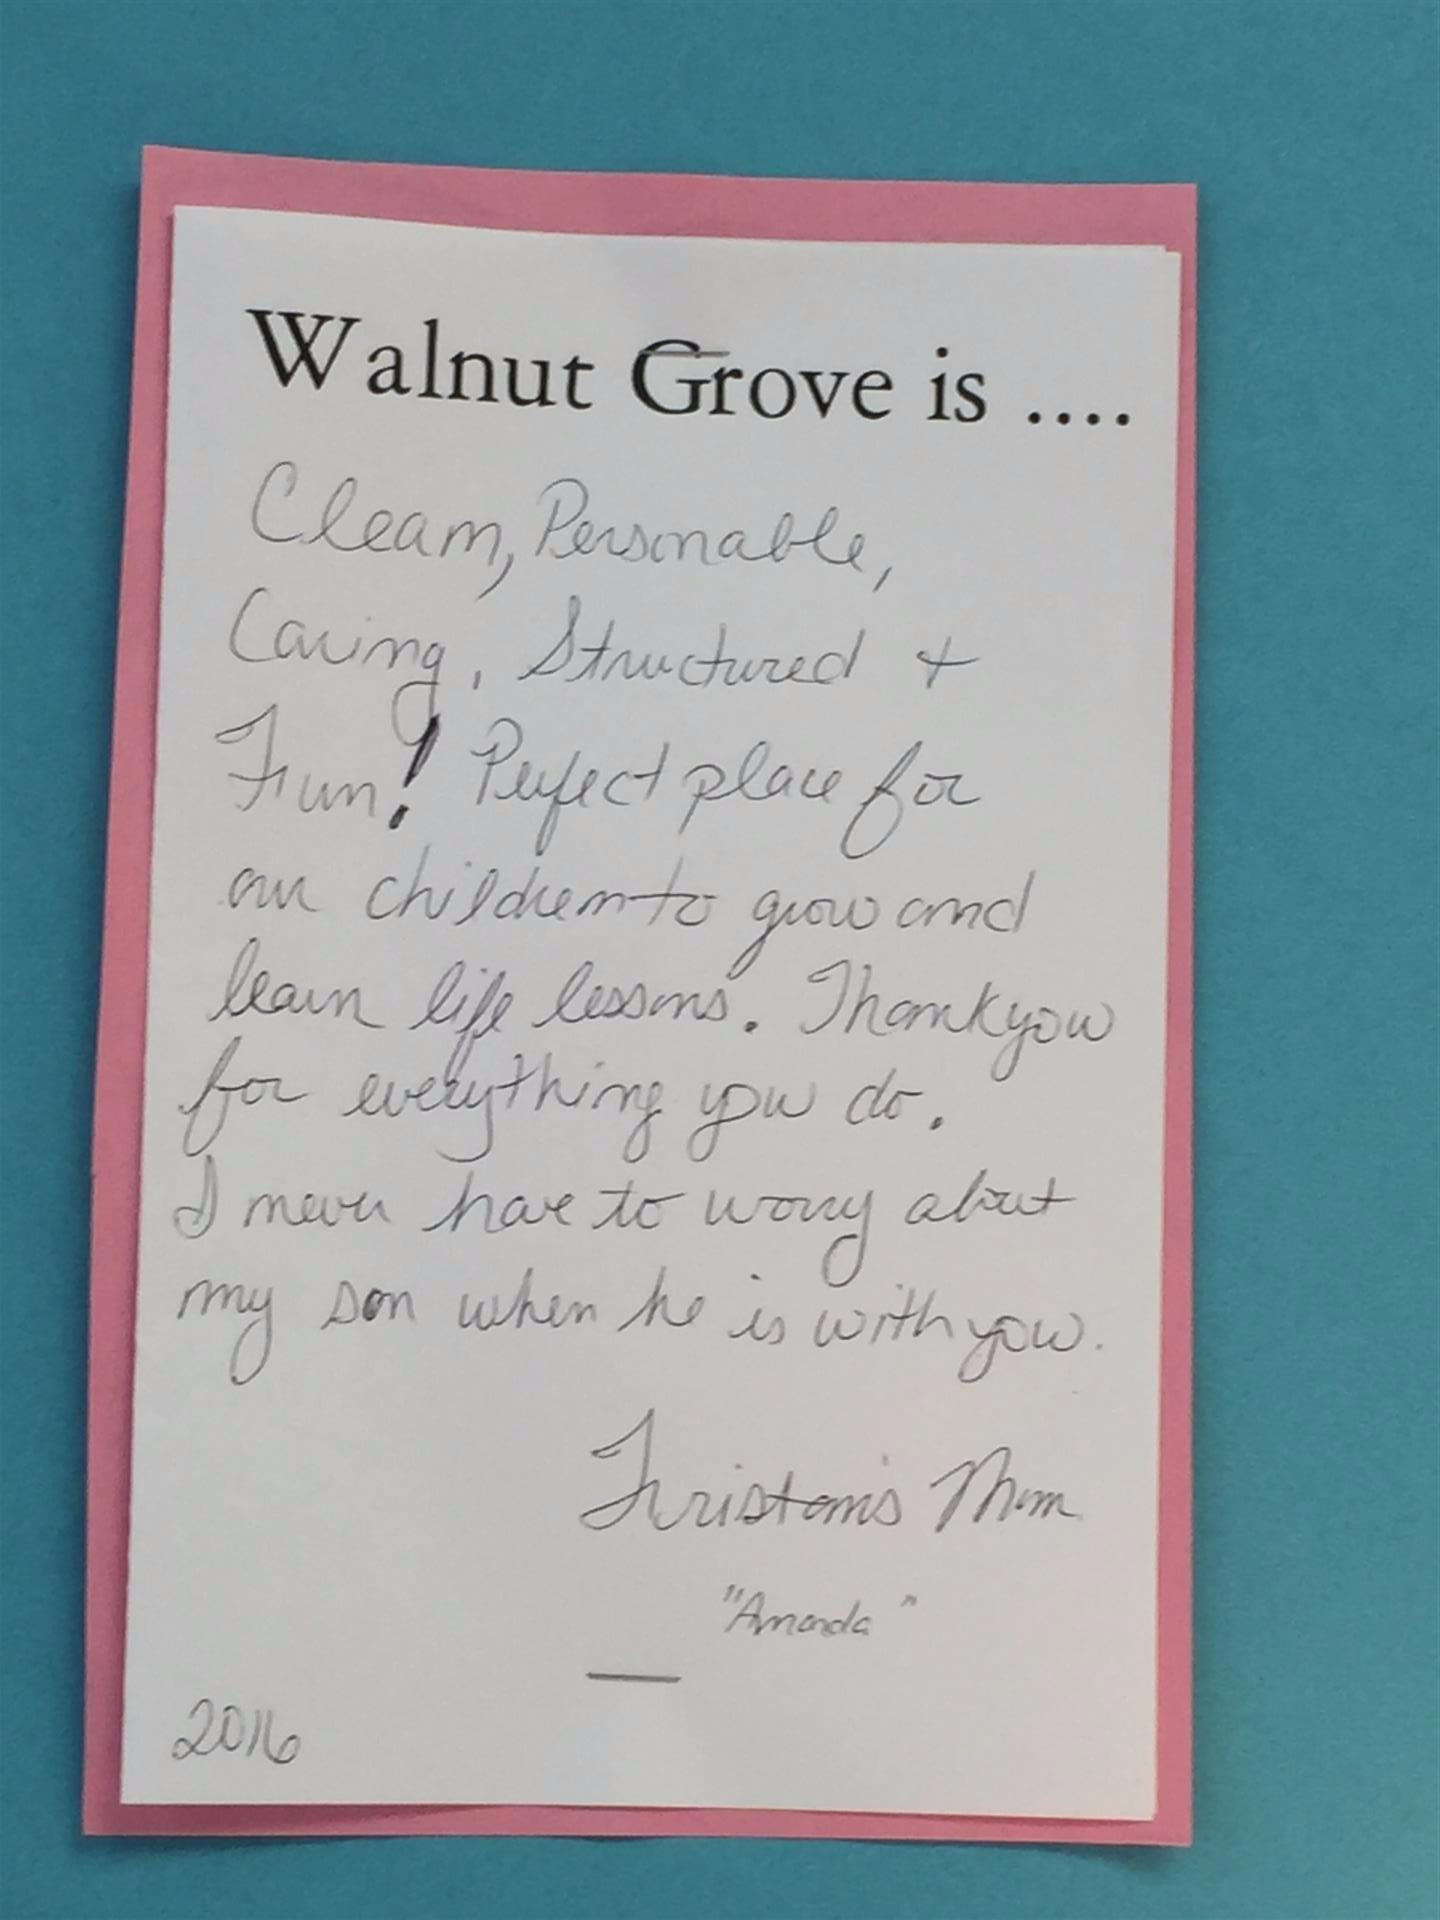 Walnut Grove is ....
Clean, Personable,
Caring, Structured +
Fun! Perfect place for
our children to grow and
learn life lessons. Thank you
for everything you do.
I never have to worry about
my son when he is with you.
Tristan's Mom
"Amanda"
2016